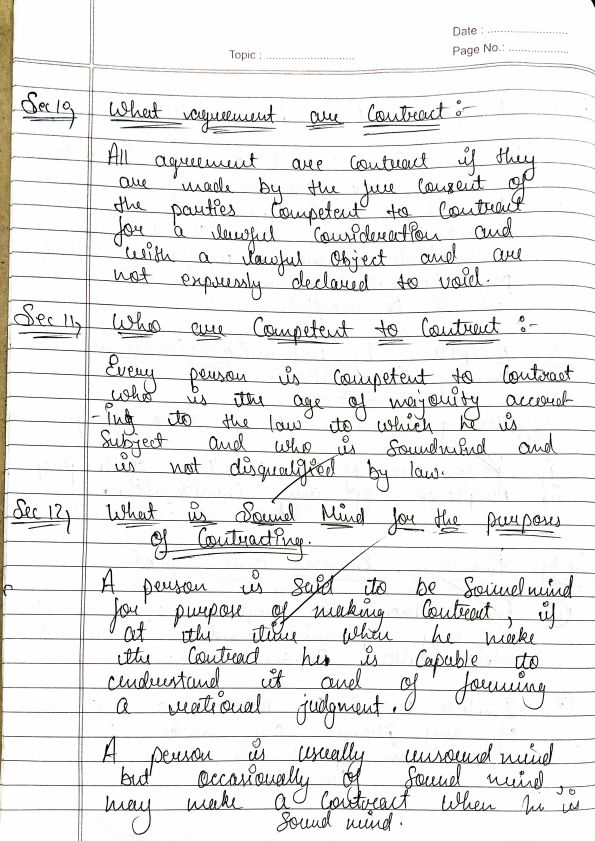 Date : ..........................
Topic : ..............................
Page No.: ...................
Sec 10, What agreement are Contract :-
All agreement are Contract if they
are made by the free Consent of
the parties Competent to Contract
for a lawful Consideration and
with a lawful Object and are
not expressly declared to void.
Sec 11, Who are Competent to Contract :-
Every person is competent to Contract
who is the age of majority accord-
-ing to the law to which he is
Subject and who is Soundmind and
is not disqualified by law.
Sec 12, What is Sound Mind for the purposes
of Contracting.
A person is said to be Soundmind
for purpose of making Contract, if
at the time when he make
the Contract he is Capable to
understand it and of forming
a rational judgment.
A person is usually unsound mind
but occasionally of Sound mind
may make a Contract when he is
Sound mind.